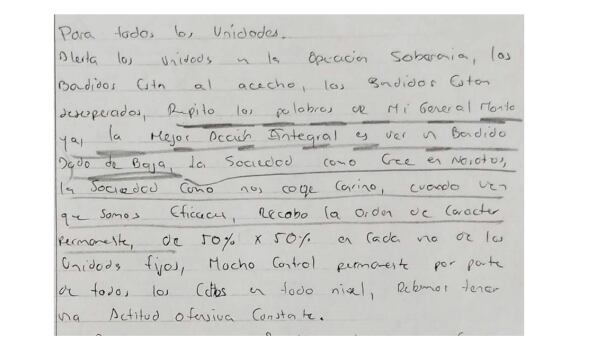 Para todas las Unidades.
Alerta las Unidads en la Operación Soberania, los
Bandidos Estn al acecho, los Bndidos Estan
desesperados, Repito las palabras de Mi General Monto
ya, la Mejor Acción Integral es ver un Bandido
Dado de Baja, la Sociedad como Cree en Nosotros,
la Sociedad Como nos coge Carino, cuando ven
que somos Eficaces, Recabo la Orden de Caracter
Permaneste, de 50% x 50% en Cada una de las
Unidads fijas, Mucho Control permaneste por parte
de todos los Cdtes en todo nivel, Debemos tener
una Actitud ofensiva Constante.